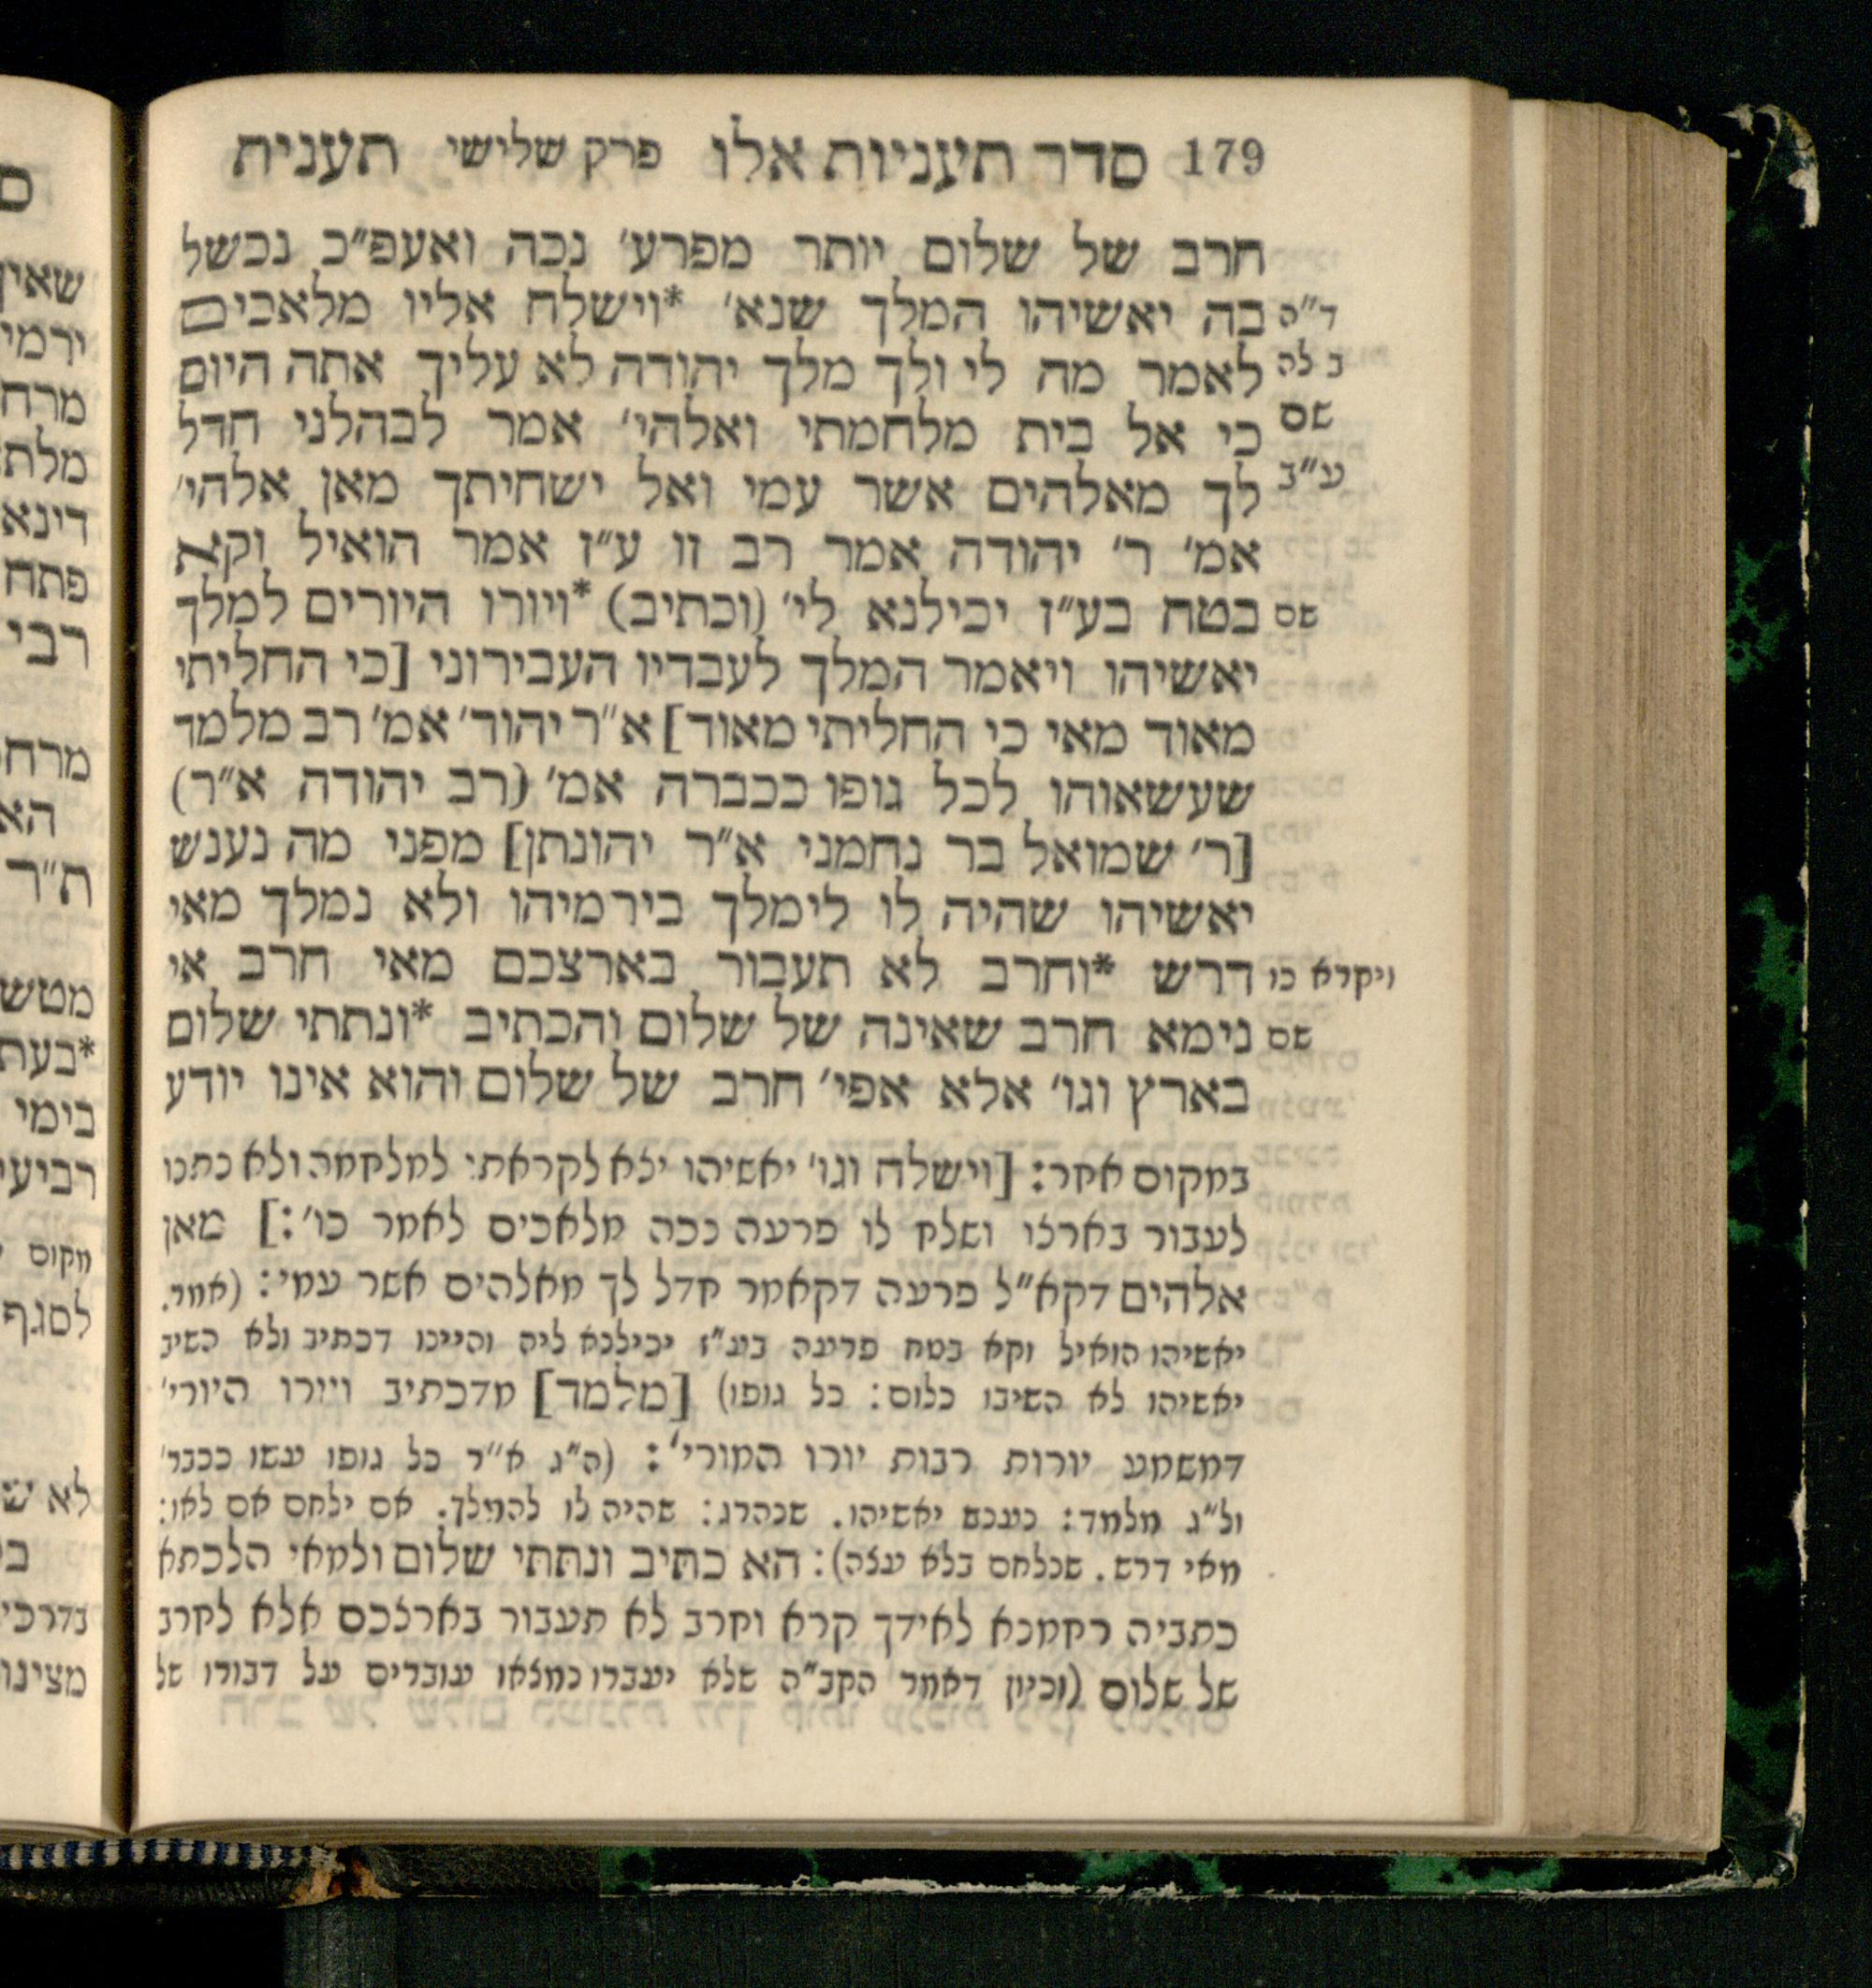 179 סדר תעניות אלו פרק שלישי תענית
חרב של שלום יותר מפרע׳ נכה ואעפ״כ נכשל
ד״ה בה יאשיהו המלך שנא׳ *וישלח אליו מלאכים
ב לה לאמר מה לי ולך מלך יהודה לא עליך אתה היום
שם כי אל בית מלחמתי ואלהי׳ אמר לבהלני חדל
ע״ב לך מאלהים אשר עמי ואל ישחיתך מאן אלהי׳
אמ׳ ר׳ יהודה אמר רב זו ע״ז אמר הואיל וקא
שם בטח בע״ז יכילנא לי׳ (וכתיב) *ויורו היורים למלך
יאשיהו ויאמר המלך לעבדיו העבירוני [כי החליתי
מאוד מאי כי החליתי מאוד] א״ר יהוד׳ אמ׳ רב מלמד
שעשאוהו לכל גופו ככברה אמ׳ (רב יהודה א״ר)
[ר׳ שמואל בר נחמני א״ר יהונתן] מפני מה נענש
יאשיהו שהיה לו לימלך בירמיהו ולא נמלך מאי
ויקרא כו דרש *וחרב לא תעבור בארצכם מאי חרב אי
שם נימא חרב שאינה של שלום והכתיב *ונתתי שלום
בארץ וגו׳ אלא אפי׳ חרב של שלום והוא אינו יודע
במקום אחר: [וישלח וגו׳ יאשיהו יצא לקראתי למלחמה ולא נתנו
לעבור בארצו ושלח לו פרעה נכה מלאכים לאמר כו׳:] מאן
אלהים דקא״ל פרעה דקאמר חדל לך מאלהים אשר עמי: (אמר.
יאשיהו הואיל וקא בטח פרעה בע״ז יכילנא ליה והיינו דכתיב ולא השיב
יאשיהו לא השיבו כלום: כל גופו) [מלמד] מדכתיב ויירו היורי׳
דמשמע יורות רבות יורו המורי׳: (ה״ג א״ר כל גופו עשו ככבר׳
ול״ג מלמד: נענש יאשיהו. שנהרג: שהיה לו להמלך. אם ילחם אם לאו:
מאי דרש. שנלחם בלא עצה): הא כתיב ונתתי שלום ולמאי הלכתא
כתביה רחמנא לאידך קרא וחרב לא תעבור בארצכם אלא לחרב
של שלום (וכיון דאמר הקב״ה שלא יעברו נמצאו עוברים על דבורו של